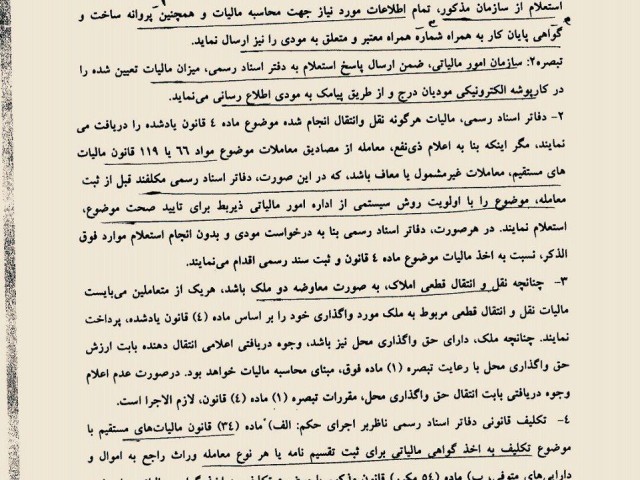 استعلام از سازمان مذکور، تمام اطلاعات مورد نیاز جهت محاسبه مالیات و همچنین پروانه ساخت و
گواهی پایان کار به همراه شماره همراه معتبر و متعلق به مودی را نیز ارسال نماید.
تبصره۲: سازمان امور مالیاتی، ضمن ارسال پاسخ استعلام به دفتر اسناد رسمی، میزان مالیات تعیین شده را
در کارپوشه الکترونیکی مودیان درج و از طریق پیامک به مودی اطلاع رسانی می‌نماید.
۲- دفاتر اسناد رسمی، مالیات هرگونه نقل وانتقال انجام شده موضوع ماده ۴ قانون یادشده را دریافت می
نمایند، مگر اینکه بنا به اعلام ذی‌نفع، معامله از مصادیق معاملات موضوع مواد ۶۶ یا ۱۱۹ قانون مالیات
های مستقیم، معاملات غیرمشمول یا معاف باشد، که در این صورت، دفاتر اسناد رسمی مکلفند قبل از ثبت
معامله، موضوع را با اولویت روش سیستمی از اداره امور مالیاتی ذیربط برای تایید صحت موضوع،
استعلام نمایند. در هرصورت، دفاتر اسناد رسمی بنا به درخواست مودی و بدون انجام استعلام موارد فوق
الذکر، نسبت به اخذ مالیات موضوع ماده ۴ قانون و ثبت سند رسمی اقدام می‌نمایند.
۳- چنانچه نقل و انتقال قطعی املاک، به صورت معاوضه دو ملک باشد، هریک از متعاملین می‌بایست
مالیات نقل و انتقال قطعی مربوط به ملک مورد واگذاری خود را بر اساس ماده (۴) قانون یادشده، پرداخت
نمایند. چنانچه ملک، دارای حق واگذاری محل نیز باشد، وجوه دریافتی اعلامی انتقال دهنده بابت ارزش
حق واگذاری محل با رعایت تبصره (۱) ماده فوق، مبنای محاسبه مالیات خواهد بود. درصورت عدم اعلام
وجوه دریافتی بابت انتقال حق واگذاری محل، مقررات تبصره (۱) ماده (۴) قانون، لازم الاجرا است.
۴- تکلیف قانونی دفاتر اسناد رسمی ناظربر اجرای حکم: الف) ماده (۳۴) قانون مالیات‌های مستقیم با
موضوع تکلیف به اخذ گواهی مالیاتی برای ثبت تقسیم نامه یا هر نوع معامله وراث راجع به اموال و
دارایی‌های متوفی، ب) ماده (۵۴ مکرر) قانون